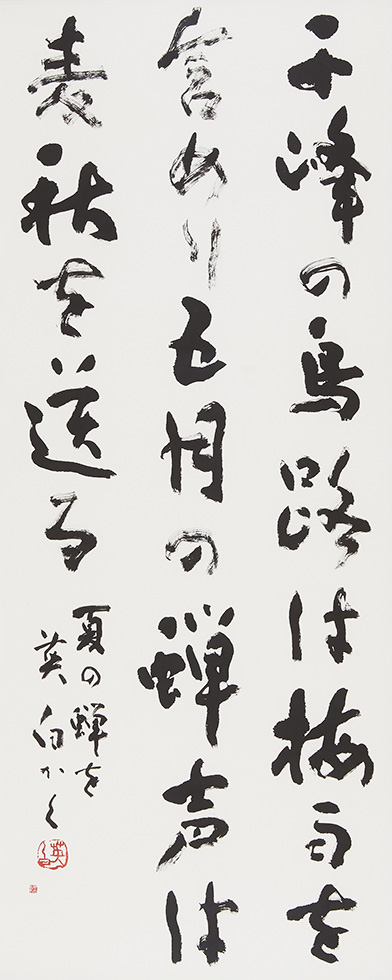 千峰の鳥路は梅雨を
含めり五月の蝉声は
麦秋を送る
夏の蝉を
英白かく
英白